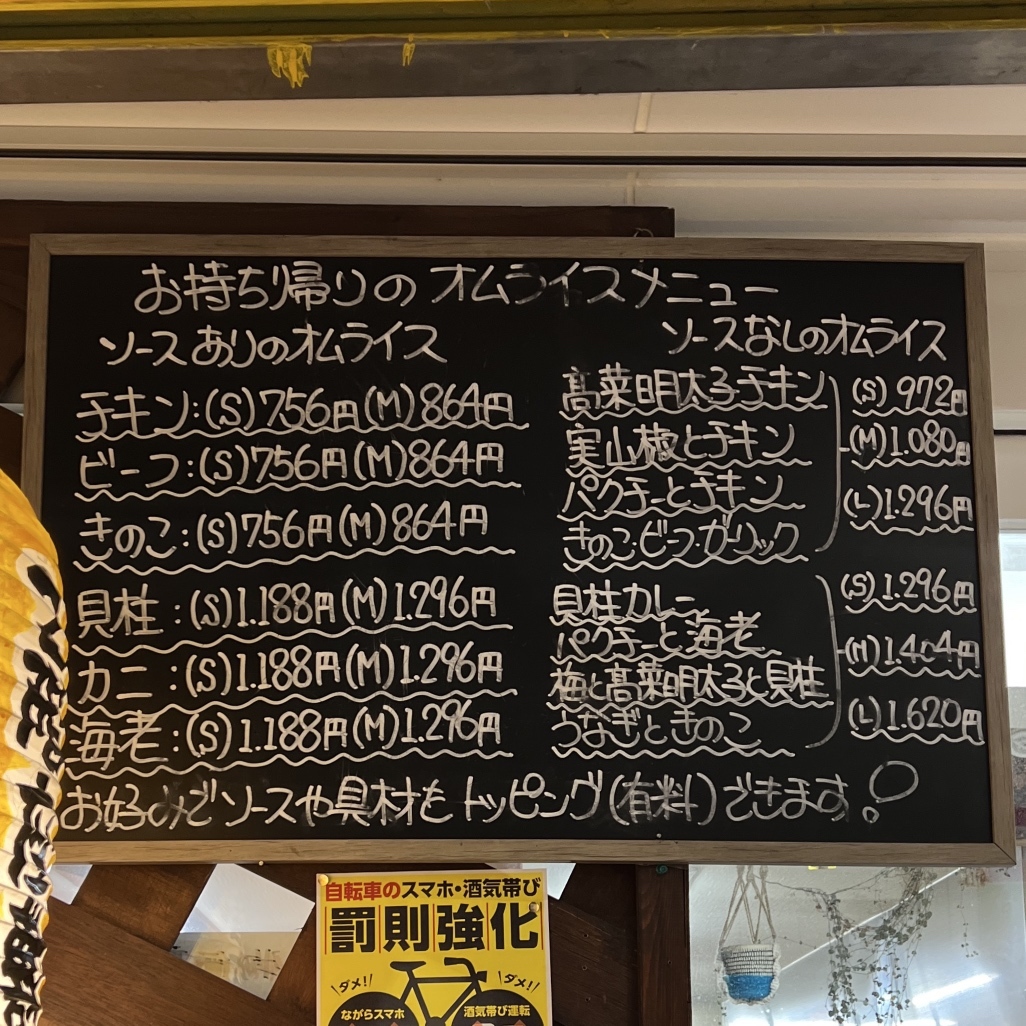 お持ち帰りのオムライスメニュー
ソースありのオムライス
チキン:(S)756円(M)864円
ビーフ:(S)756円(M)864円
きのこ:(S)756円(M)864円
貝柱:(S)1.188円(M)1.296円
カニ:(S)1.188円(M)1.296円
海老:(S)1.188円(M)1.296円
ソースなしのオムライス
高菜明太子チキン
実山椒とチキン
パクチーとチキン
きのこ・ビーフ・ガーリック
(S)972円
(M)1.080円
(L)1.296円
貝柱カレー
パクチーと海老
梅と高菜明太子と貝柱
うなぎときのこ
(S)1.296円
(M)1.404円
(L)1.620円
お好みでソースや具材もトッピング(有料)できます!
自転車のスマホ・酒気帯び
罰則強化
ダメ!!
ダメ!!
ながらスマホ
酒気帯び運転